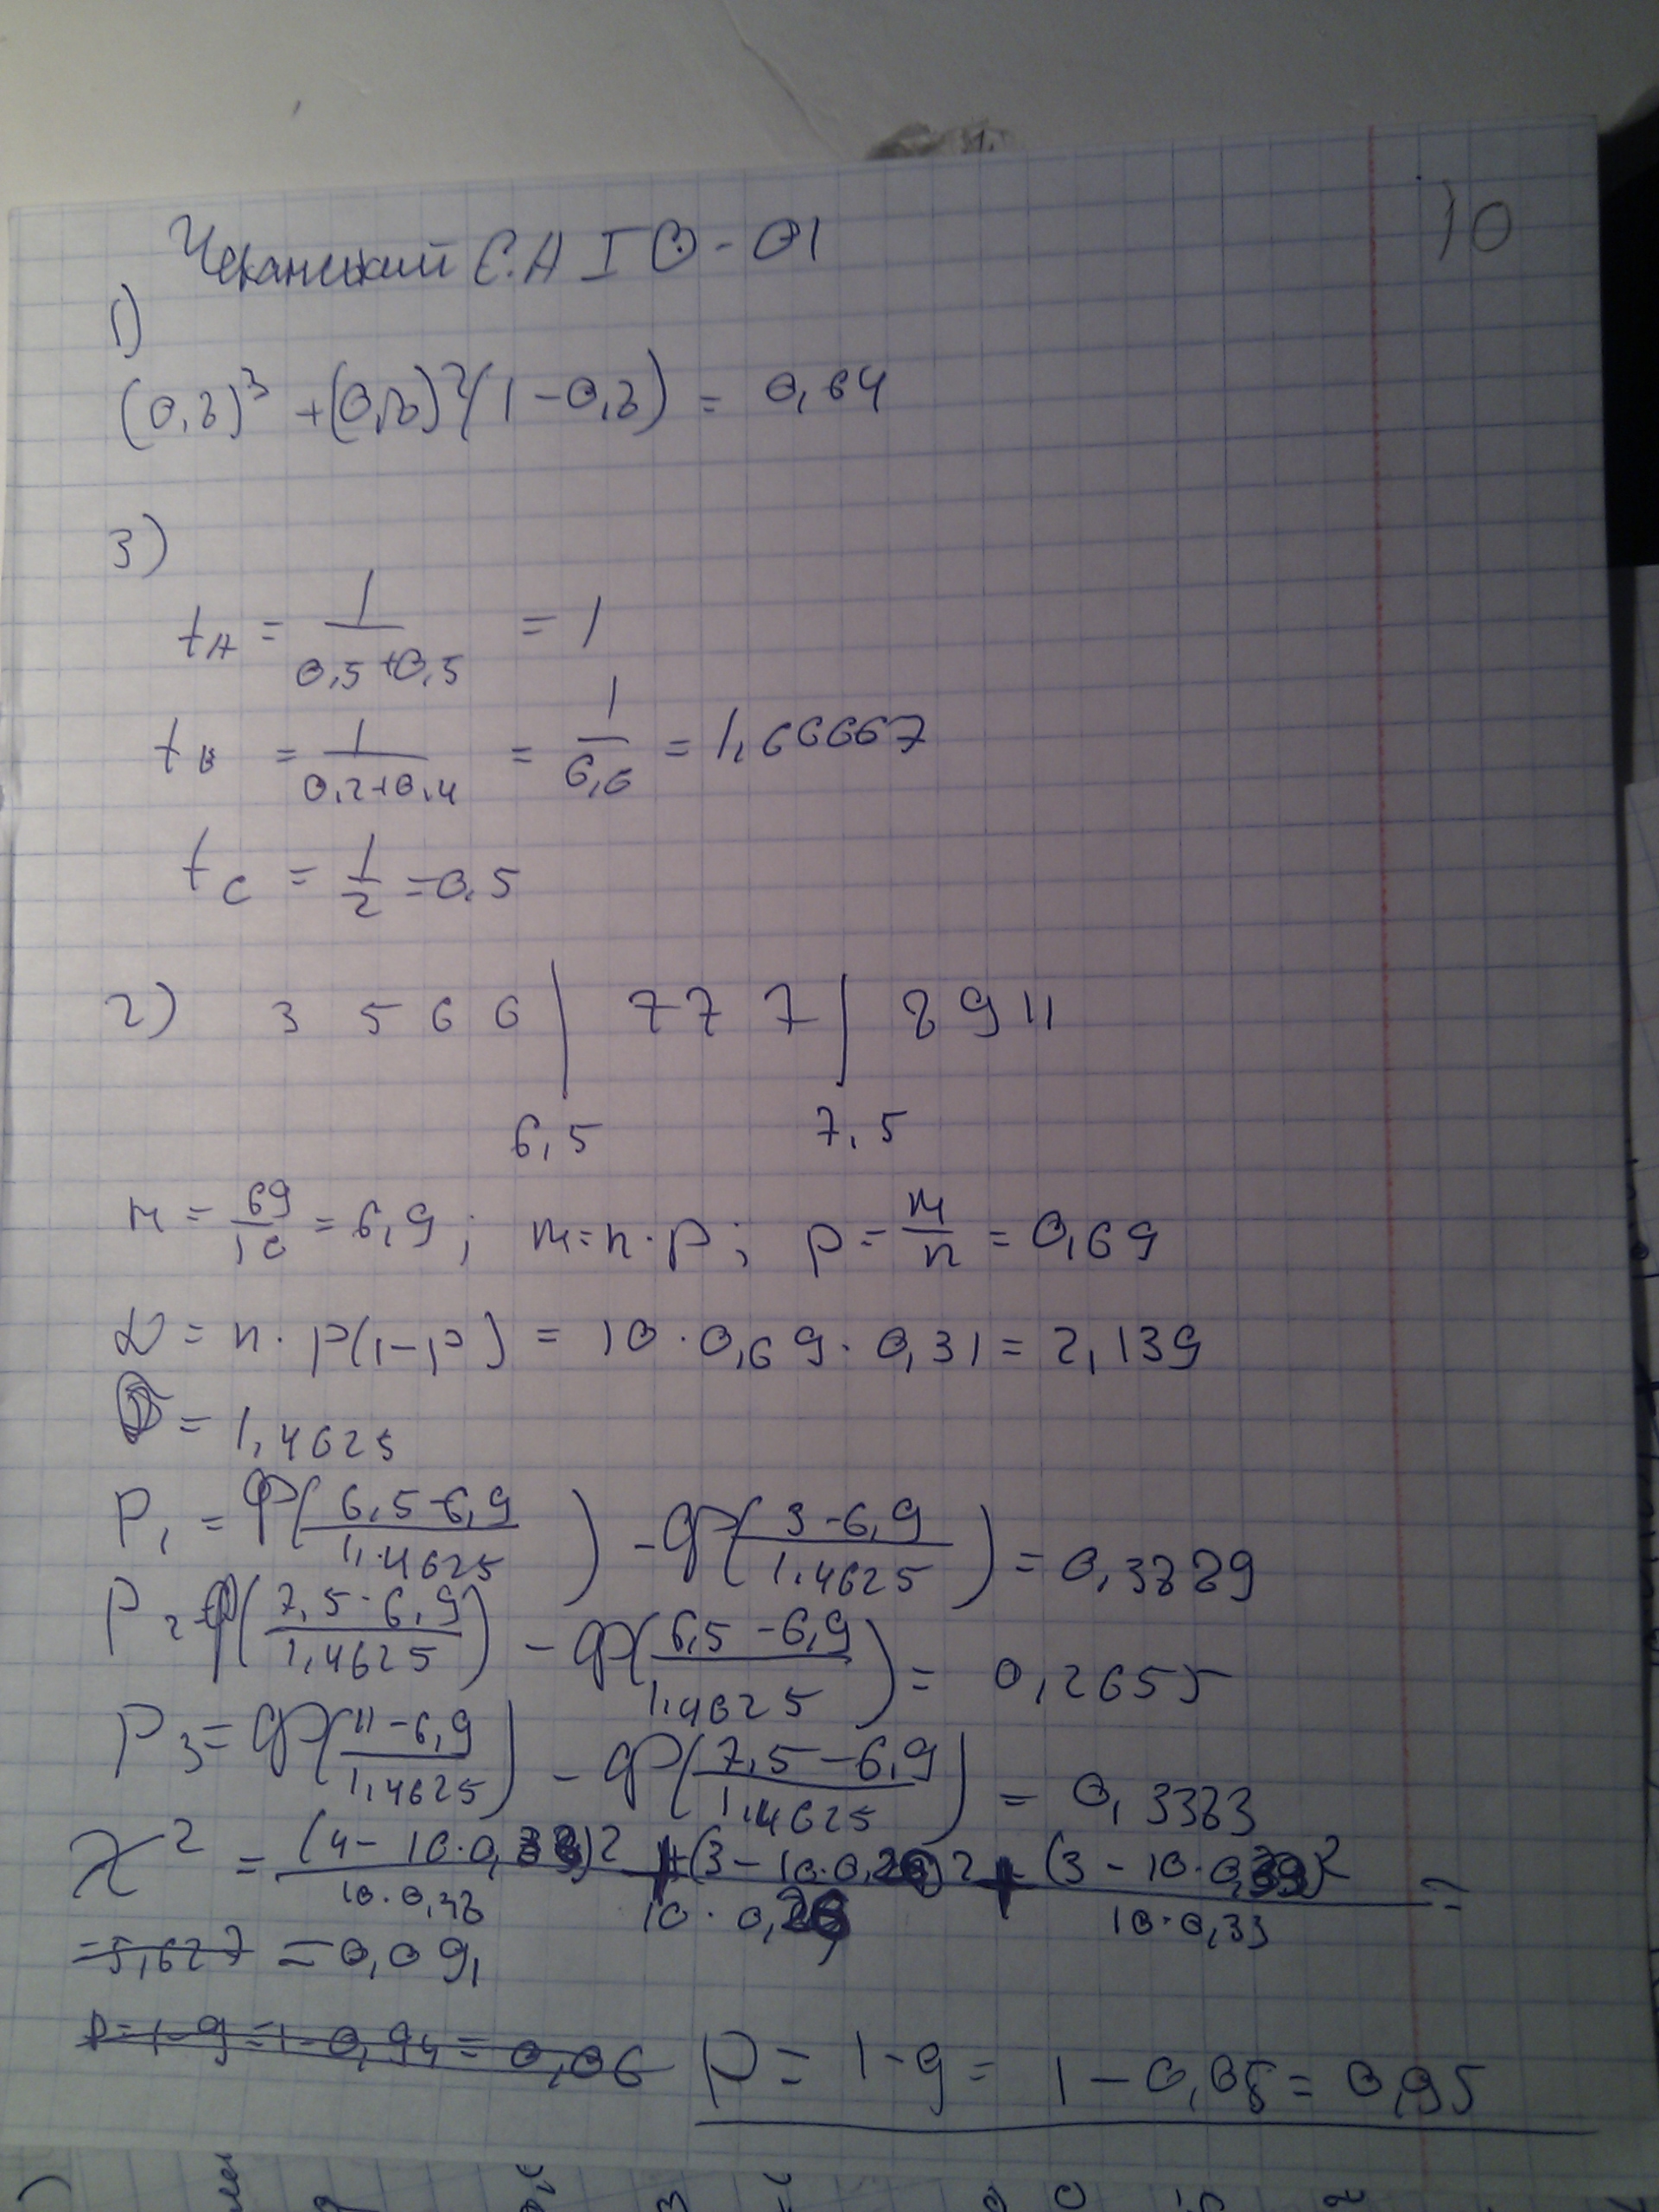 10
Чеканецкий Е.А IO-01
1)
(0,8)³ + (0,8)²(1-0,8) = 0,64
3)
tA = 1/(0,5+0,5) = 1
tB = 1/(0,2+0,4) = 1/6,6 = 1,66667
tC = 1/2 = 0,5
2) 3 5 6 6 | 7 7 7 | 8 9 11
6,5 7,5
m = 69/10 = 6,9; m=n·p; p = m/n = 0,69
D = n·p(1-p) = 10·0,69·0,31 = 2,139
= 1,4625
P1 = Ф((6,5-6,9)/1,4625) - Ф((3-6,9)/1,4625) = 0,3889
P2 = Ф((7,5-6,9)/1,4625) - Ф((6,5-6,9)/1,4625) = 0,2655
P3 = Ф((11-6,9)/1,4625) - Ф((7,5-6,9)/1,4625) = 0,3383
X² = (4-10·0,38)2/(10·0,38) + (3-10·0,26)2/(10·0,26) + (3-10·0,33)²/(10·0,33) =
= 5,627 = 0,091
p=1-g=1-0,94=0,06 p = 1-g = 1-0,05 = 0,95